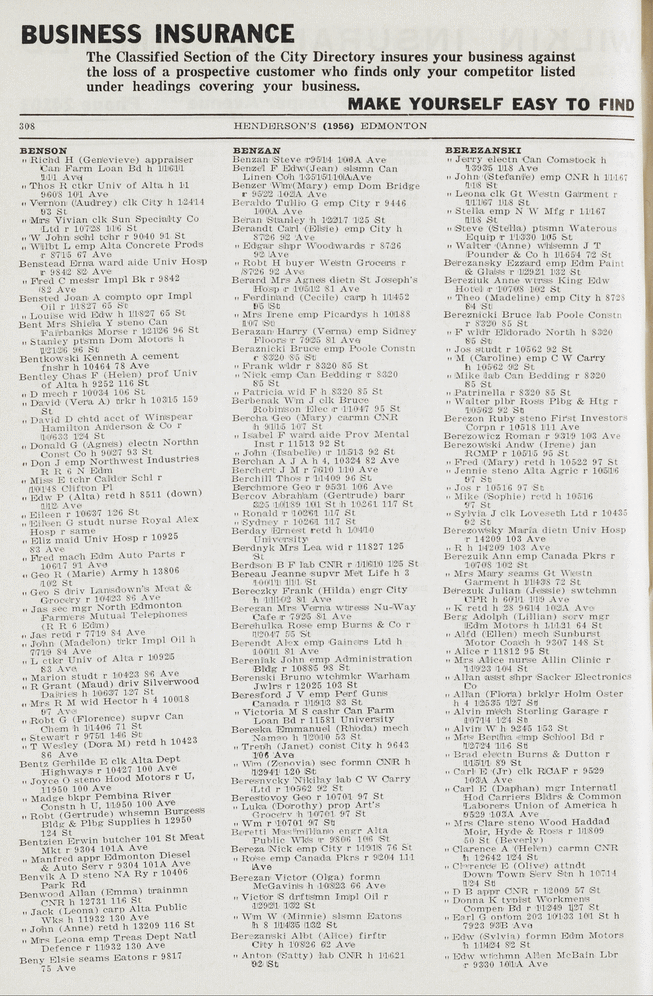 BUSINESS INSURANCE
The Classified Section of the City Directory insures your business against
the loss of a prospective customer who finds only your competitor listed
under headings covering your business.
MAKE YOURSELF EASY TO FIND
308
HENDERSON'S (1956) EDMONTON
BENSON
" Richd H (Genevieve) appraiser
Can Farm Loan Bd h 11611
111 Ave
" Thos R ctkr Univ of Alta h 11
9608 101 Ave
" Vernon (Audrey) clk City h 12414
93 St
" Mrs Vivian clk Sun Specialty Co
Ltd r 10728 116 St
" W John schl tchr r 9040 91 St
" Wilbt L emp Alta Concrete Prods
r 8715 67 Ave
Benstead Erna ward aide Univ Hosp
r 9842 82 Ave
" Fred C messr Impl Bk r 9842
82 Ave
Bensted Joan A compto opr Impl
Oil r 11827 65 St
" Louise wid Edw h 11827 65 St
Bent Mrs Shiela Y steno Can
Fairbanks Morse r 12126 96 St
" Stanley ptsmn Dom Motors h
12126 96 St
Bentkowski Kenneth A cement
fnshr h 10464 78 Ave
Bentley Chas F (Helen) prof Univ
of Alta h 9252 116 St
" D mech r 10034 106 St
" David (Vera A) trkr h 10315 159
St
" David D chtd acct of Winspear
Hamilton Anderson & Co r
10633 124 St
" Donald G (Agnes) electn Northn
Const Co h 9027 93 St
" Don J emp Northwest Industries
R R 6 N Edm
" Miss E tchr Calder Schl r
10148 Clifton Pl
" Edw P (Alta) retd h 8511 (down)
112 Ave
" Eileen r 10637 126 St
" Eileen G studt nurse Royal Alex
Hosp r same
" Eliz maid Univ Hosp r 10925
83 Ave
" Fred mach Edm Auto Parts r
10617 91 Ave
" Geo R (Marie) Army h 13806
102 St
" Geo S driv Lansdown's Meat &
Grocery r 10423 86 Ave
" Jas sec mgr North Edmonton
Farmers Mutual Telephones
(R R 6 Edm)
" Jas retd r 7719 84 Ave
" John (Madelon) trkr Impl Oil h
7719 84 Ave
" L ctkr Univ of Alta r 10925
83 Ave
" Marion studt r 10423 86 Ave
" R Grant (Maud) driv Silverwood
Dairies h 10637 127 St
" Mrs R M wid Hector h 4 10018
97 Ave
" Robt G (Florence) supvr Can
Chem h 11406 71 St
" Stewart r 9751 146 St
" T Wesley (Dora M) retd h 10423
86 Ave
Bentz Gerhilde E clk Alta Dept
Highways r 10427 100 Ave
" Joyce O steno Hood Motors r U,
11950 100 Ave
" Madge bkpr Pembina River
Constn h U, 11950 100 Ave
" Robt (Gertrude) whsemn Burgess
Bldg & Plbg Supplies h 12950
124 St
Bentzien Erwin butcher 101 St Meat
Mkt r 9304 101A Ave
" Manfred appr Edmonton Diesel
& Auto Serv r 9304 101A Ave
Benvik A D steno NA Ry r 10406
Park Rd
Benwood Allan (Emma) trainmn
CNR h 12731 116 St
" Jack (Leona) carp Alta Public
Wks h 11932 130 Ave
" John (Anne) retd h 13209 116 St
" Mrs Leona emp Treas Dept Natl
Defence r 11932 130 Ave
Beny Elsie seams Eatons r 9817
75 Ave
BENZAN
Benzan Steve r9514 108A Ave
Benzel F Edw(Jean) slsmn Can
Linen Coh 13515110AAve
Benzer Wm(Mary) emp Dom Bridge
r 9522 102A Ave
Beraldo Tullio G emp City r 9446
100A Ave
Beran Stanley h 12217 125 St
Berandt Carl (Elsie) emp City h
8726 92 Ave
" Edgar shpr Woodwards r 8726
92 Ave
" Robt H buyer Westn Grocers r
8726 92 Ave
Berard Mrs Agnes dietn St Joseph's
Hosp r 10512 81 Ave
" Ferdinand (Cecile) carp h 11452
95 St
" Mrs Irene emp Picardys h 10188
107 St
Berazan Harry (Verna) emp Sidney
Floors r 7925 81 Ave
Beraznicki Bruce emp Poole Constn
r 8320 85 St
" Frank wldr r 8320 85 St
" Nick emp Can Bedding r 8320
85 St
" Patricia wid F h 8320 85 St
Berbenak Wm J clk Bruce
Robinson Elec r 11047 95 St
Bercha Geo (Mary) carmn CNR
h 9115 107 St
" Isabel F ward aide Prov Mental
Inst r 11513 92 St
" John (Isabelle) ir 11513 92 St
Berchan A J A h 4, 10324 82 Ave
Berchert J M r 7610 110 Ave
Berchill Thos r 11409 96 St
Berchmore Geo r 9531 106 Ave
Bercov Abraham (Gertrude) barr
325 10189 101 St h 10261 117 St
" Ronald r 10261 117 St
" Sydney r 10261 117 St
Berday Ernest retd h 10410
University
Berdnyk Mrs Lea wid r 11827 125
St
Berdson B F lab CNR r 11610 125 St
Bereau Jeanne supvr Met Life h 3
10011 111 St
Bereczky Frank (Hilda) engr City
h 11102 81 Ave
Beregan Mrs Verna wtress Nu-Way
Cafe r 7925 81 Ave
Berehulka Rose emp Burns & Co r
12047 55 St
Berendt Alex emp Gainers Ltd h
10011 81 Ave
Bereniak John emp Administration
Bldg r 10885 98 St
Berenski Bruno wtchmkr Warham
Jwlrs r 12025 103 St
Beresford J V emp Perf Guns
Canada r 11913 83 St
" Victoria M S cashr Can Farm
Loan Bd r 11581 University
Bereska Emmanuel (Rhoda) mech
Namao h 12019 53 St
" Treph (Janet) const City h 9643
106 Ave
" Wm (Zenovia) sec formn CNR h
12941 120 St
Beresnvcky Nikilay lab C W Carry
Ltd r 10562 92 St
Berestovoy Geo r 10701 97 St
" Luka (Dorothy) prop Art's
Grocery h 10701 97 St
" Wm r 10701 97 St
Beretti Massimiliano engr Alta
Public Wks r 9806 106 St
Bereza Nick emp City r 11918 76 St
" Rose emp Canada Pkrs r 9204 111
Ave
Berezan Victor (Olga) formn
McGavins h 10823 66 Ave
" Victor S drftsmn Impl Oil r
12921 132 St
" Wm W (Minnie) slsmn Eatons
h 8 11435 132 St
Berezanski Albt (Alice) firftr
City h 10826 62 Ave
" Anton (Satty) lab CNR h 11621
92 St
BEREZANSKI
" Jerry electn Can Comstock h
13935 118 Ave
" John (Stefanie) emp CNR h 11167
118 St
" Leona clk Gt Westn Garment r
11167 118 St
" Stella emp N W Mfg r 11167
118 St
" Steve (Stella) ptsmn Waterous
Equip r 11330 105 St
" Walter (Anne) whsemn J T
Pounder & Co h 11654 72 St
Berezansky Ezzard emp Edm Paint
& Glass r 12921 132 St
Bereziuk Anne wtress King Edw
Hotel r 10708 102 St
" Theo (Madeline) emp City h 8728
84 St
Bereznicki Bruce lab Poole Constn
r 8320 85 St
" F wldr Eldorado North h 8320
85 St
" Jos studt r 10562 92 St
" M (Caroline) emp C W Carry
h 10562 92 St
" Mike lab Can Bedding r 8320
85 St
" Patrinella r 8320 85 St
" Walter plbr Ross Plbg & Htg r
10562 92 St
Berezon Ruby steno First Investors
Corpn r 10518 111 Ave
Berezowicz Roman r 9319 103 Ave
Berezowski Andw (Irene) jan
RCMP r 10515 95 St
" Fred (Mary) retd h 10522 97 St
" Jennie steno Alta Agric r 10516
97 St
" Jos r 10516 97 St
" Mike (Sophie) retd h 10516
97 St
" Sylvia J clk Loveseth Ltd r 10435
92 St
Berezowsky Maria dietn Univ Hosp
r 14209 103 Ave
" R h 14209 103 Ave
Berezuik Ann emp Canada Pkrs r
10708 102 St
" Mrs Mary seams Gt Westn
Garment h 11438 72 St
Berezuk Julian (Jessie) swtchmn
CPR h 6011 119 Ave
" K retd h 28 9614 102A Ave
Berg Adolph (Lillian) serv mgr
Edm Motors h 11431 64 St
" Alfd (Ellen) mech Sunburst
Motor Coach h 9307 148 St
" Alice r 11812 95 St
" Mrs Alice nurse Allin Clinic r
11923 104 St
" Allan asst shpr Sacker Electronics
Co
" Allan (Flora) brklyr Holm Oster
h 4 12535 127 St
" Alvin mech Storling Garage r
10714 124 St
" Alvin W h 9245 153 St
" Mrs Bertha emp School Bd r
12724 116 St
" Brad electn Burns & Dutton r
11511 89 St
" Carl E (Jr) clk RCAF r 9529
103A Ave
" Carl E (Daphan) mgr Internatl
Hod Carriers Bldrs & Common
Laborers Union of America h
9529 103A Ave
" Mrs Clare steno Wood Haddad
Moir, Hyde & Ross r 11809
50 St (Beverly)
" Clarence A (Helen) carmn CNR
h 12642 124 St
" Clarence E (Olive) attndt
Down Town Serv Stn h 10714
124 St
" D B appr CNR r 12009 57 St
" Donna K typist Workmens
Compen Bd r 11249 127 St
" Earl G optom 203 10133 101 St h
7923 93B Ave
" Edw (Sylvia) formn Edm Motors
h 11424 82 St
" Edw wtchmn Allen McBain Lbr
r 9330 101A Ave